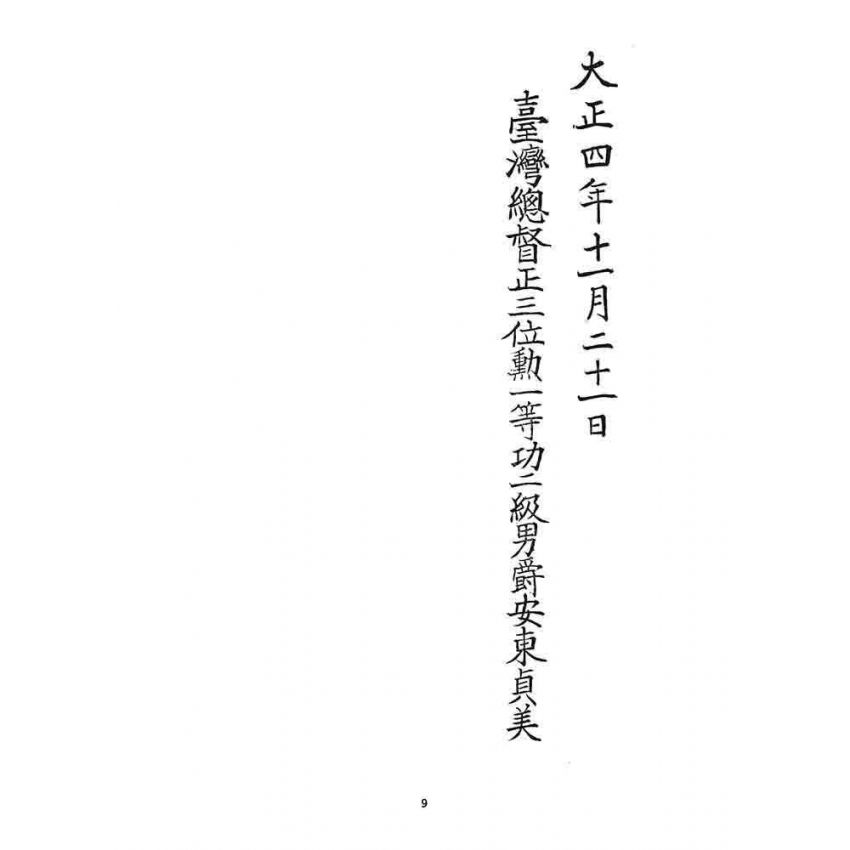 大正四年十一月二十一日
臺灣總督正三位勳一等功二級男爵安東貞美
9